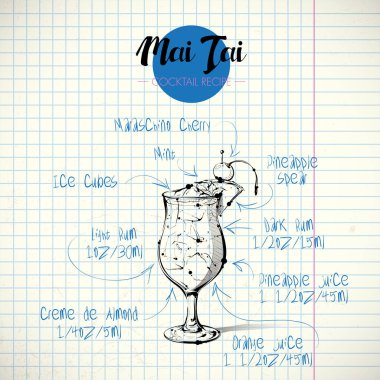 Mai Tai
COCKTAIL RECIPE
Maraschino Cherry
Mint
Pineapple
Spear
Ice Cubes
Light Rum
1oz/30ml
Dark Rum
1/2oz/15ml
Pineapple juice
1 1/2oz/45ml
Creme de Almond
1/4oz/5ml
Orange juice
1 1/2oz/45ml